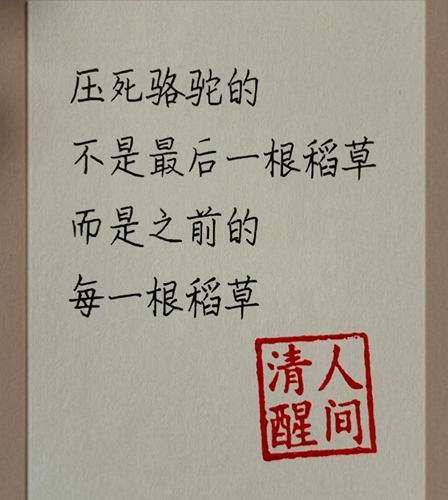 压死骆驼的
不是最后一根稻草
而是之前的
每一根稻草
人间
清醒